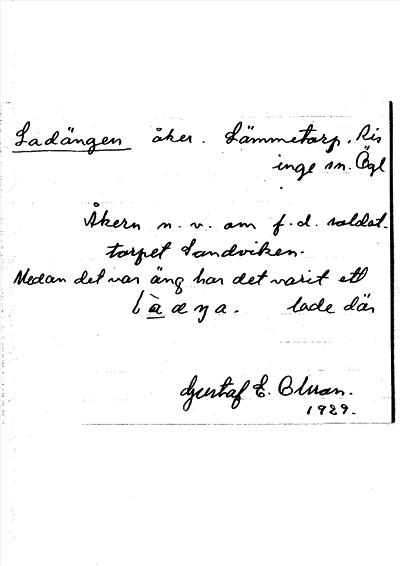 Ladängen åker. Lämmetorp. Ris
inge sn. Ögl
Åkern n. v. om f.d. soldat-
torpet Sandviken.
Medan det var äng har det varit ett
lade där
Gustaf E.
1929.